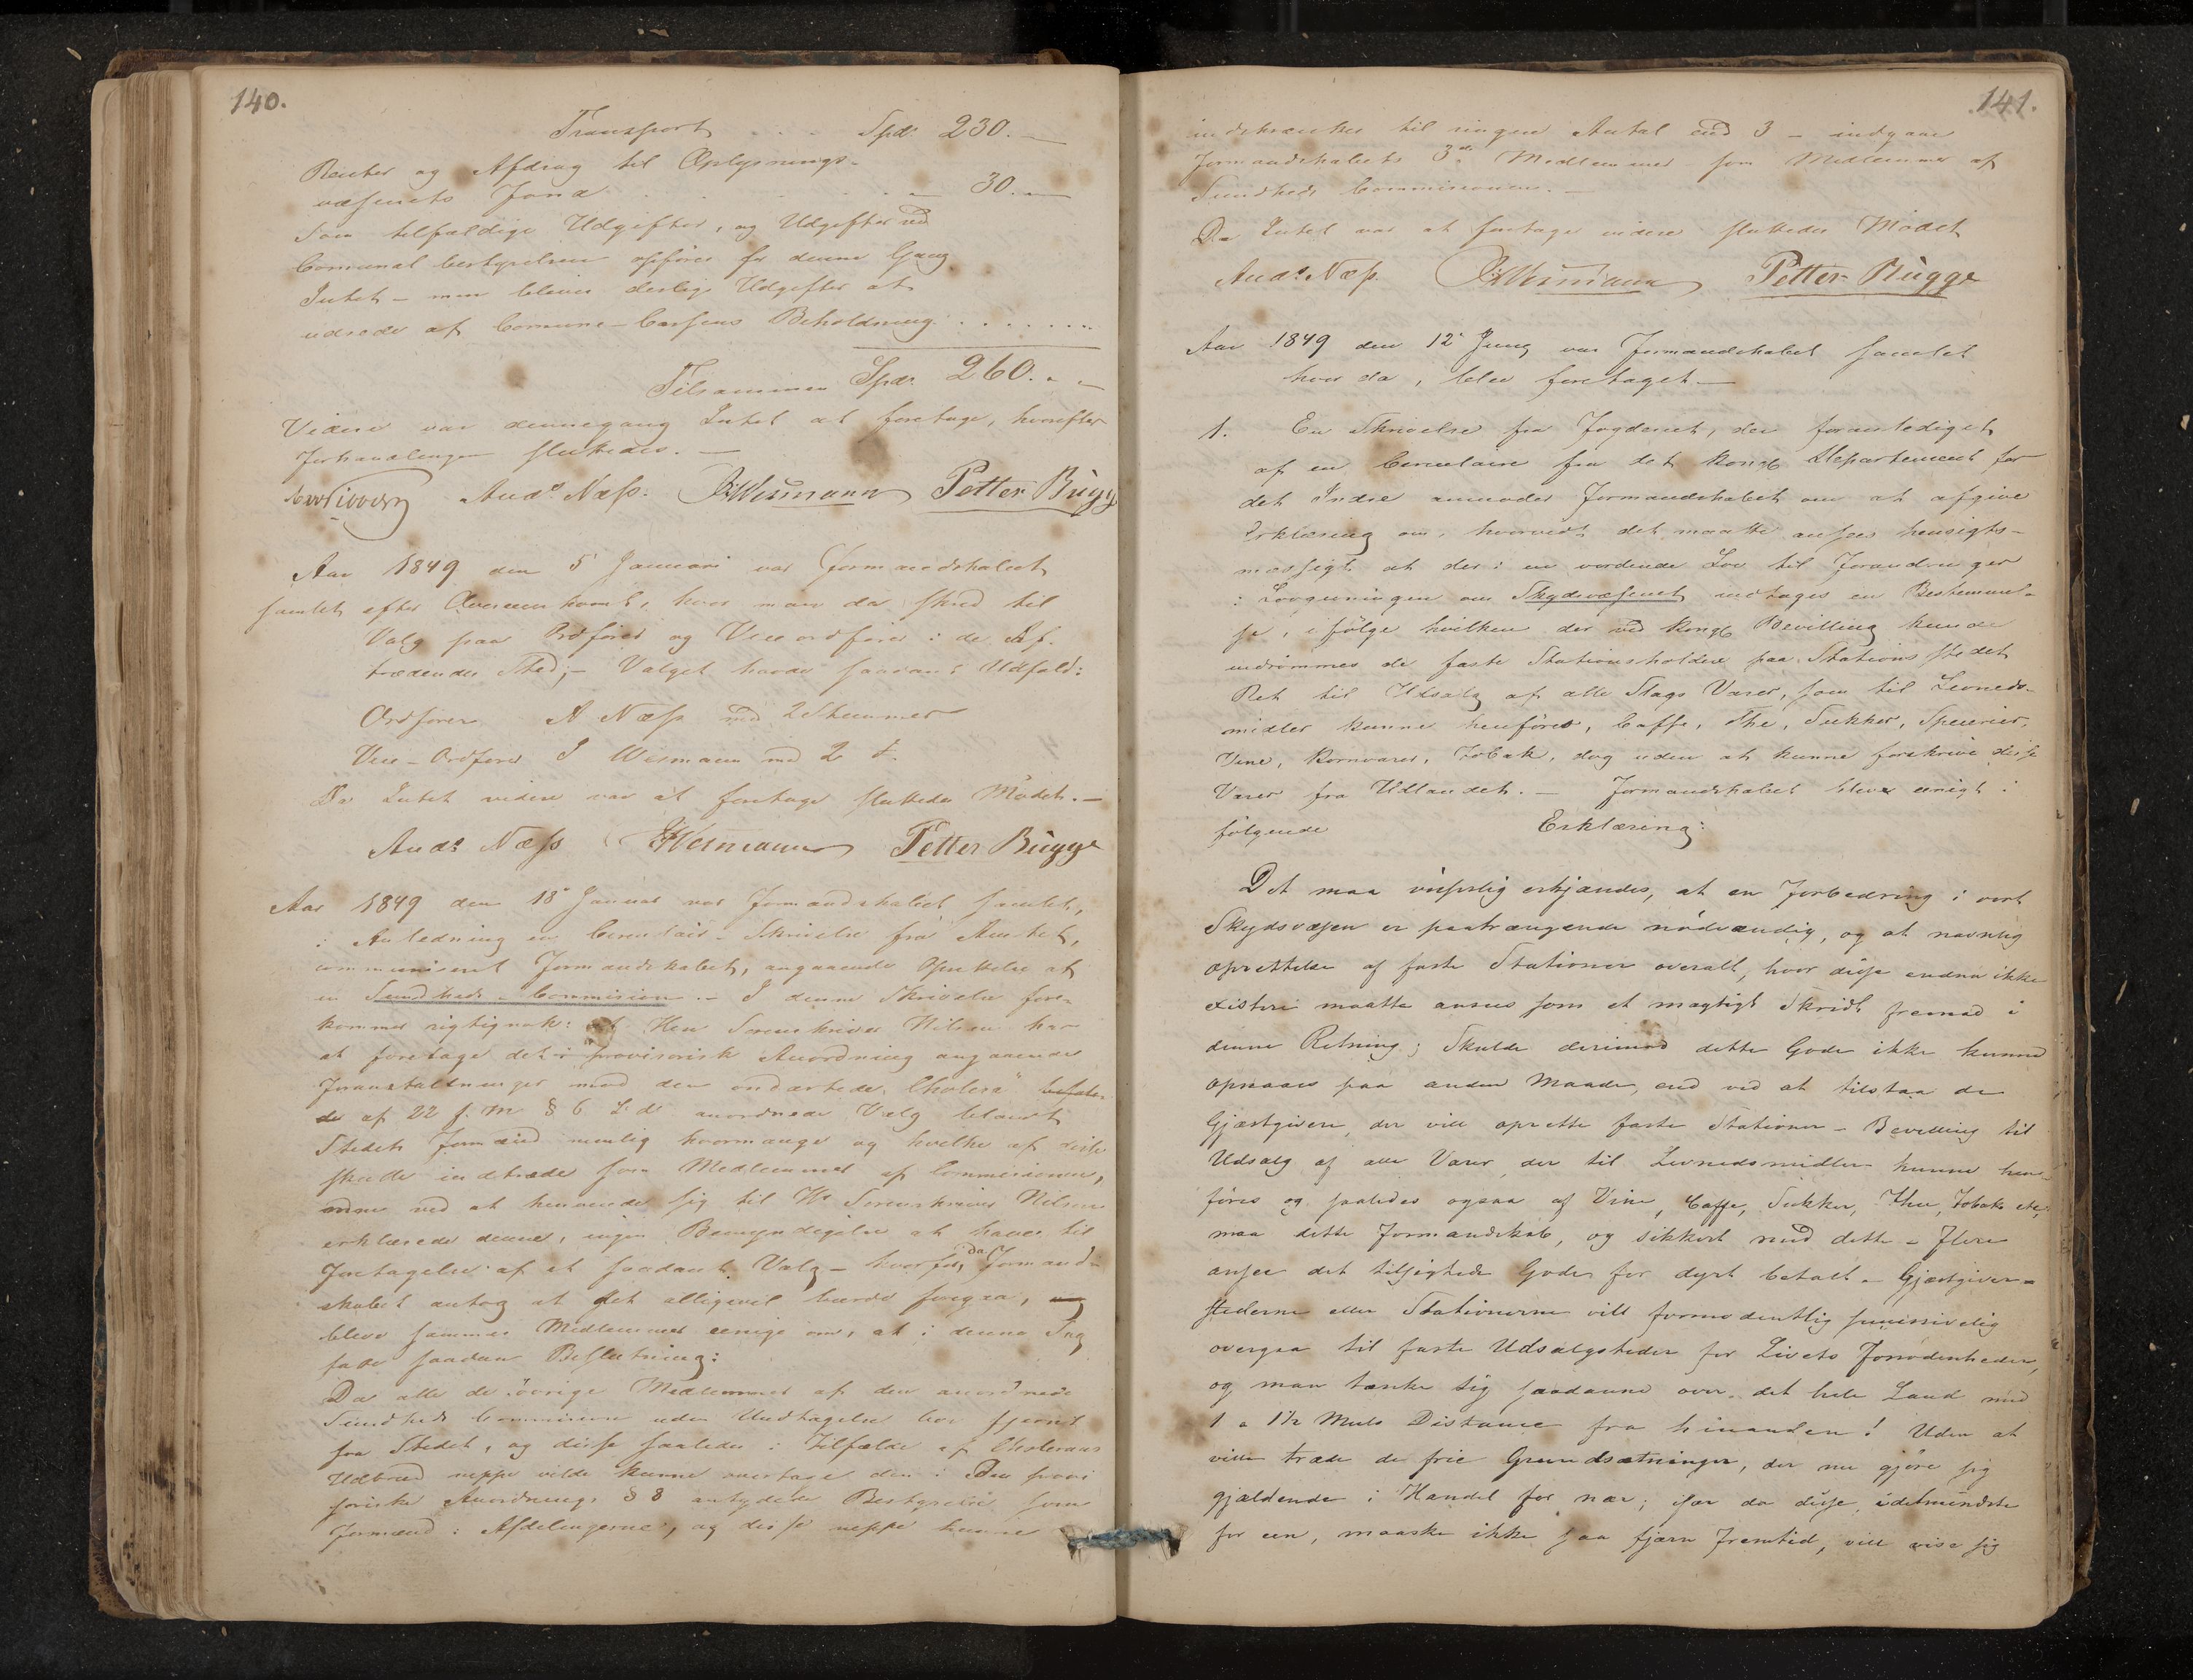 140.
Transport . . . Spd. 230. —
Renter og Afdrag til Oplysnings-
væsenets Fond . . . . — 30. —
Som tilfældige Udgifter, og Udgifter ved
Comunal bestyrelsen opföres for denne Gang
Intet — men bliver deslige Udgifter at
udrede af Comune-Cassens Beholdning . . . . . . .
Tilsammen Spd. 260. - -
Videre var dennegang Intet at foretage, hvorefter
Forhandlingen sluttedes. —
And. Næss. Wesmann Petter Bügge
Aar 1849 den 5 Januari var Formandskabet
samlet efter Overeenkomst, hvor man da skred til
Valg paa Ordförer og Viceordförer i de Af-
trædendes Sted; — Valget havde saadant Udfald:
Ordförer A Næss med 2 Stemmer
Vice-Ordförer J Wesmann med 2 d.
Da Intet videre var at foretage sluttedes Mödet. —
And. Næss Wesmann Petter Bügge
Aar 1849 den 18 Januar var Formandskabet samlet,
i Anledning en Circulair-Skrivelse fra Amtet,
communiseret Formandskabet, angaaende Oprettelse af
en Sundheds-Commission. — I denne Skrivelse fore-
kommer rigtignok: at Herr Sorenskriver Nilsen har
at foretage det i provisorisk Anordning angaaende
Foranstaltninger mod den ondartede "Cholera"
af 22 f. M § 6 anordnede Valg blandt
Stedets Formænd nemlig hvormange og hvilke af disse
skulde indtræde som Medlemmer af Commissionen,
men ved at henvende sig til Hr Sorenskriver Nilsen
erklærede denne, ingen Bemyndigelse at have til
Foretagelse af et saadant Valg — hvorfor, da Formand-
skabet antog at det alligevel burde foregaa,
bleve sammes Medlemmer eenige om, at i denne Sag
fatte saadan Beslutning:
Da alle de övrige Medlemmer af den anordnede
Sundheds Commission uden Undtagelse boe fjernt
fra Stedet, og disse saaledes i Tilfælde af Choleraens
Udbrud neppe vilde kunne overtage den i Den provi
soriske Anordnings § 8 antydede Bestyrelse som
Formænd i Afdelingerne, og disse neppe kunne
141.
indskrænkes til ringere Antal end 3 — indgaar
Formandskabets 3de Medlemmer som Medlemmer af
Sundheds Commissionen. —
Da Intet var at foretage videre sluttedes Mödet
And. Næss. Wesmann Petter Bügge
Aar 1849 den 12 Juny var Formandskabet samlet
hvor da, blev foretaget —
1. En Skrivelse fra Fogderiet, der foranlediget
af en Circulaire fra det Kongl Departement for
det Indre anmoder Formandskabet om at afgive
Erklæring om, hvorvidt det maatte ansees hensigts-
mæssigt at der i en vordende Lov til Forandringer
i Lovgivningen om Skydsvæsenet indtages en Bestemmel-
se, i fölge hvilken der ved Kongl Bevilling kunde
indrömmes de faste Stationsholdere paa Stationsstedet
Ret til Udsalg af alle Slags Varer, som til Levneds-
midler kunne henföres, Caffe, The, Sukker, Specerier,
Vine, Kornvarer, Tobak, dog uden at kunne forskrive disse
Varer fra Udlandet. — Formandskabet bliver eenigt i
fölgende Erklæring:
Det maa visselig erkjændes, at en Forbedring i vort
Skydsvæsen er paatrængende nödvændig, og at navnlig
oprettelse af faste Stationer overalt, hvor disse endnu ikke
existere maatte ansees som et mægtigt Skridt fremad i
denne Retning; Skulde derimod dette Gode ikke kunne
opnaaes paa anden Maade, end ved at tilstaa de
Gjæstgivere, der vill oprette faste Stationer — Bevilling til
Udsalg af alle Varer der til Levnedsmidler kunne hen-
föres og saaledes ogsaa af Vine, Caffe, Sukker, Thee, Tobak etc,
maa dette Formandskab, og sikkert med dette — Flere
ansee det tilsigtede Gode for dyrt betalt — Gjæstgiver-
stederne eller Stationerne vill formodentlig successivelig
overgaa til faste Udsalgsteder for Livets Fornödenheder,
og man tænke sig saadanne over det hele Land med
1 a 1½ Miils Distance fra hinanden! Uden at
ville træde de frie Grundsætninger, der nu gjöre sig
gjældende i Handel for nær; især da disse, idetmindste
for een, maaske ikke saa fjærn Fremtid, vill vise sig